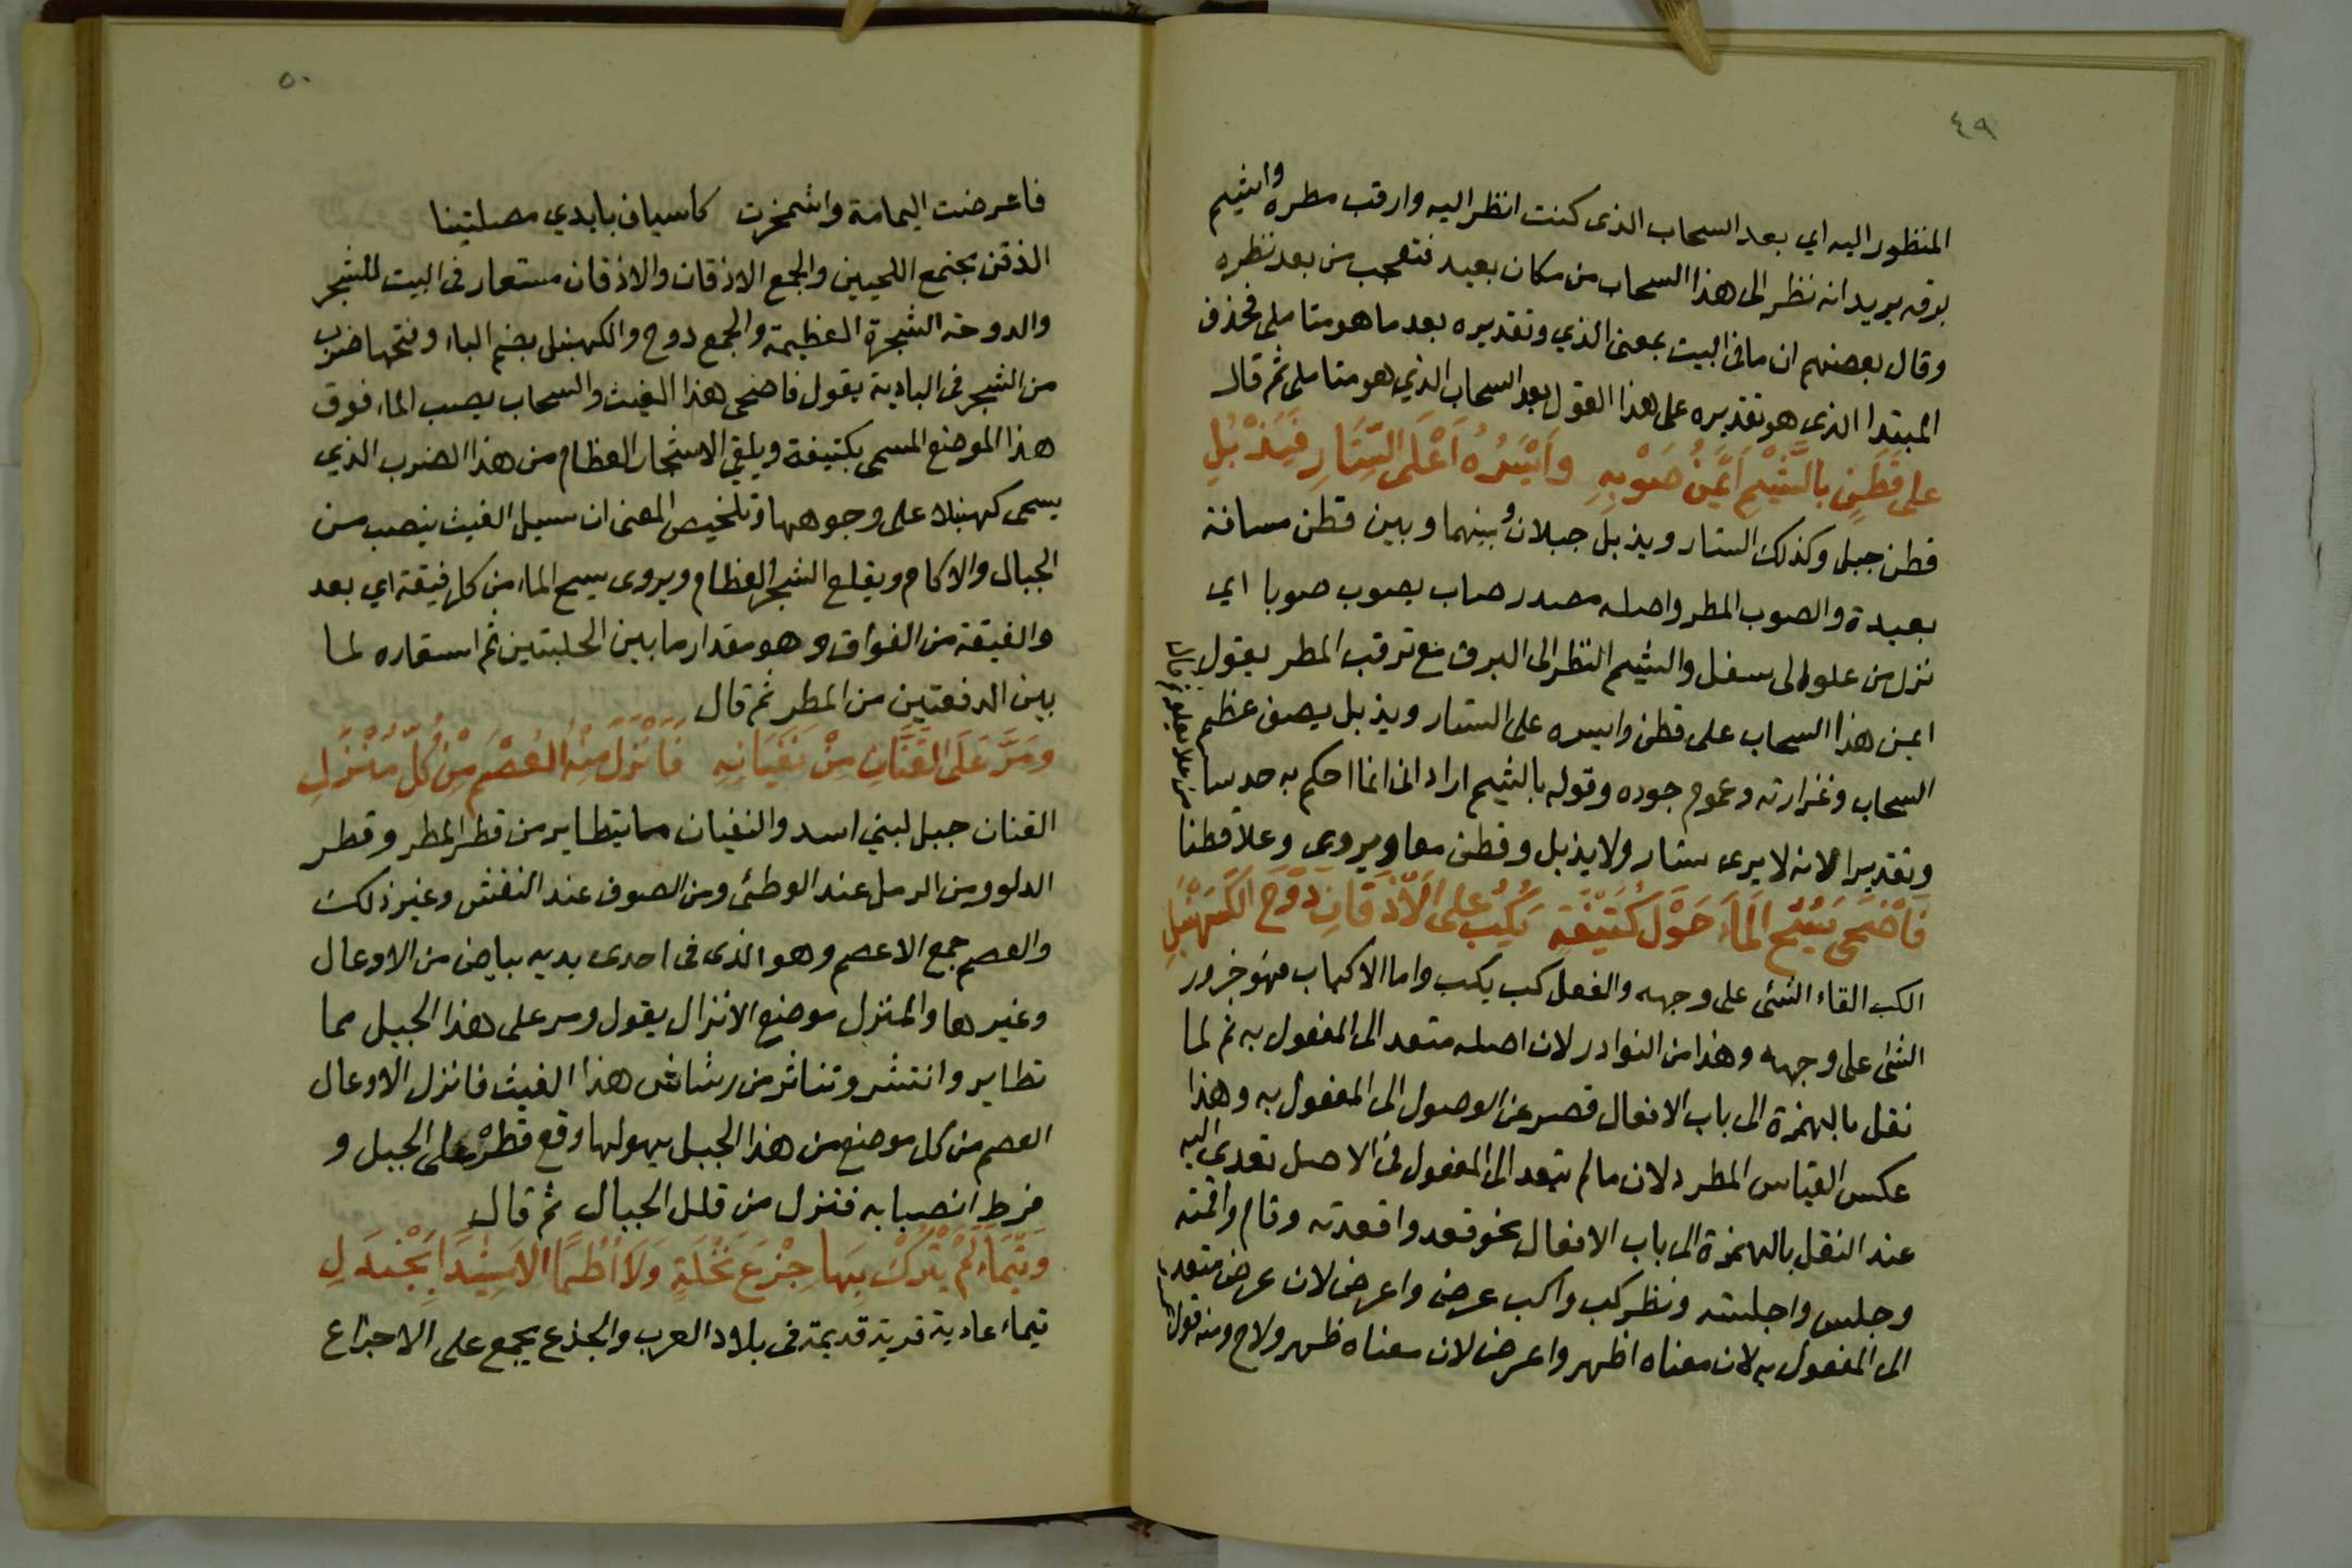 ٤٩
المنظور اليه اي بعد السحاب الذى كنت انظر اليه وارقب مطره واشيم
برقه يريد انه نظر الى هذا السحاب من مكان بعيد فتعجب من بعد نظره
وقال بعضهم ان ما فى البيت بمعنى الذي وتقديره بعد ما هو متاملى فحذف
المبتدا الذى هو تقديره على هذا القول بعد السحاب الذي هو متاملى ثم قال
على قَطَنٍ بالشَّيْمِ اَيْمَنُ صَوْبِهِ وَاَيْسَرُهُ اَعْلَى السِّتَارِ فَيَذْبُلِ
قطن جبل وكذلك الستار ويذبل جبلان وبينهما وبين قطن مسافة
بعيدة والصوب المطر واصله مصدر صاب يصوب صوبا اي
نزل من علو الى سفل والشيم النظر الى البرق مع ترقب المطر يقول
ايمن هذا السحاب على قطن وايسره على الستار ويذبل يصف عظم
السحاب وغزارته وعموم جوده وقوله بالشيم اراد انى انما احكم به حدسا
وتقديرا لانه لا يرى ستار ولا يذبل وقطن معا ويروى وعلا قطنا
من علا يعلو
فَاَضْحَى يَسُحُّ الْمَاءَ حَوْلَ كُتَيْفَةٍ يَكُبُّ على الْاَذْقَانِ دَوْحَ الْكَنَهْبَلِ
الكب القاء الشئى على وجهه والفعل كب يكب واما الاكباب فهو خرور
الشئى على وجهه وهذا من النوادر لان اصله متعد الى المفعول به ثم لما
نقل بالهمزة الى باب الافعال قصر عن الوصول الى المفعول به وهذا
عكس القياس المطرد لان ما لم يتعد الى المفعول فى الاصل تعدى اليه
عند النقل بالهمزة الى باب الافعال نحو قعد واقعدته وقام واقمته
وجلس واجلسته ونظير كب واكب عرض واعرض لان عرض متعد
الى المفعول به لان معناه اظهر واعرض لان معناه ظهر ولاح ومنه قول
٥٠
فاعرضت اليمامة واشمخرت كاسياف بايدي مصلتينا
الذقن مجتمع اللحيين والجمع الاذقان والاذقان مستعار فى البيت للشجر
والدوحة الشجرة العظيمة والجمع دوح والكهنبل بضم الباء وفتحها ضرب
من الشجر فى البادية يقول فاضحى هذا الغيث والسحاب يصب الماء فوق
هذا الموضع المسمى بكتيفة ويلقى الاشجار العظام من هذا الضرب الذي
يسمى كهنبلا على وجوهها وتلخيص المعنى ان سيل الغيث ينصب من
الجبال والاكام ويقلع الشجر العظام ويروى يسح الماء من كل فيقة اي بعد
والفيقة من الفواق وهو مقدار ما بين الحلبتين ثم استعاره لما
بين الدفعتين من المطر ثم قال
ومَرَّ عَلَى القَنَانِ مِنْ نَفَيَانِهِ فَاَنْزَلَ مِنْهُ العُصْمَ مِنْ كُلِّ مَنْزِلِ
القنان جبل لبني اسد والنفيان ما يتطاير من قطر المطر وقطر
الدلو ومن الرمل عند الوطئى ومن الصوف عند النفش وغير ذلك
والعصم جمع الاعصم وهو الذى فى احدى يديه بياض من الاوعال
وغيرها والمنزل موضع الانزال يقول ومر على هذا الجبل مما
تطاير وانتشر وتناثر من رشاش هذا الغيث فانزل الاوعال
العصم من كل موضع من هذا الجبل يهولها وقع قطره على الجبل و
فرط انصبابه فتنزل من قلل الجبال ثم قال
وَتَيْمَاءَ لَمْ يَتْرُكْ بِهَا جِزْعَ نَخْلَةٍ وَلَا اُطُمًا اِلا مَشِيْدًا بِجَنْدَلِ
تيماء عادية قرية قديمة فى بلاد العرب والجذع يجمع على الاجزاع